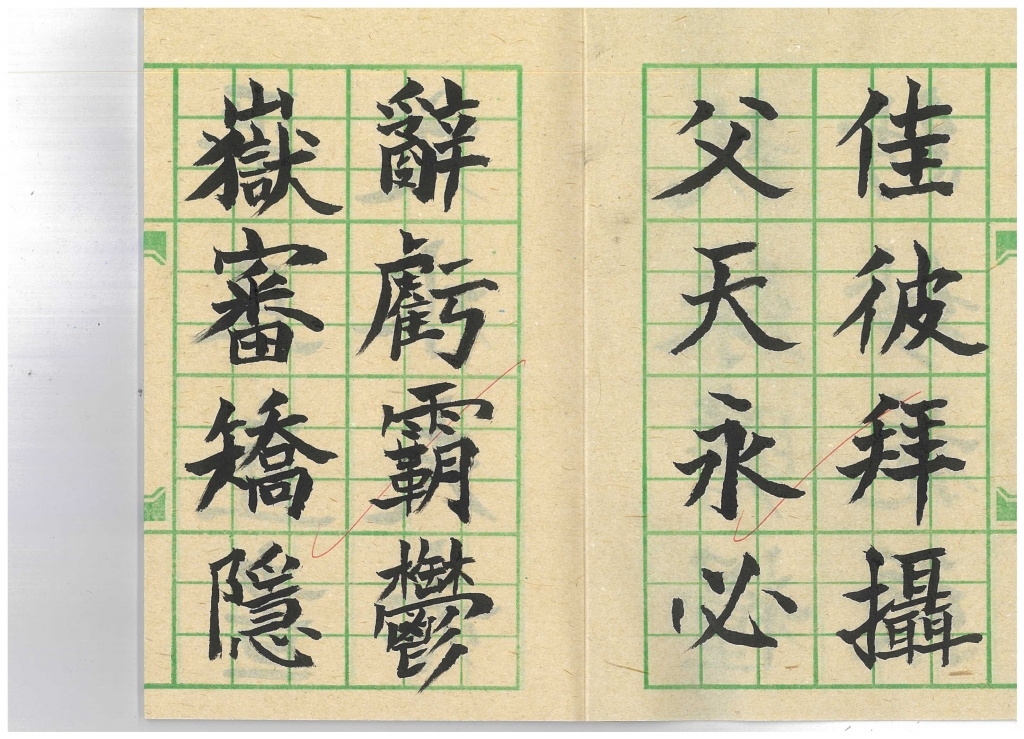 佳彼拜攝
父天永必
辭虧霸鬱
嶽審矯隱